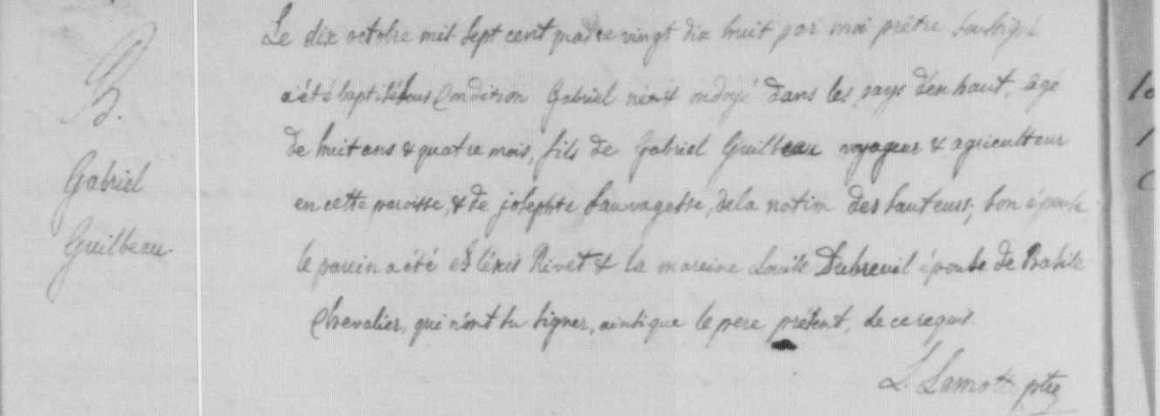 B.
Gabriel
Guilbeau.
Le dix octobre mil sept cent quatre vingt dix huit par moi prêtre soussigné
a été baptisé sous condition Gabriel né & ondoyé dans les pays d'en haut, agé
de huit ans & quatre mois, fils de Gabriel Guilbeau voyageur & agriculteur
en cette paroisse, & de josephte Sauvagesse, de la nation des Sauteurs; son épouse
le parein a été Rivet & la mareine Louise Dubreuil épouse de Basile
Chevalier, qui n'ont su signer, ainsi que le pere présent, de ce requis.
L. Lamotte ptre